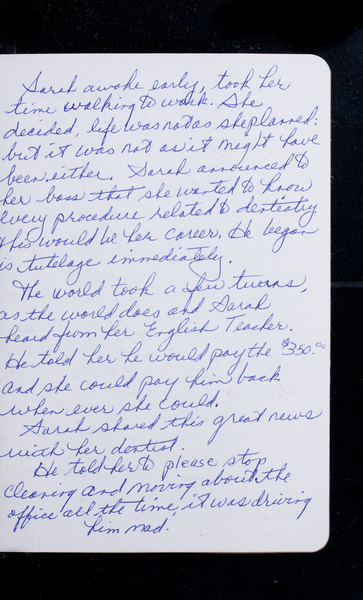 Sarah awoke early, took her
time walking to work. She
decided, life was not as she planned:
but it was not as it might have
been either. Sarah announced to
her boss that she wanted to know
every procedure related to dentistry
this would be her career. He began
is tutelage immediately.
The world took a few turns,
as the world does and Sarah
heard from her English Teacher.
He told her he would pay the $350.00
and she could pay him back
when ever she could.
Sarah shared this great news
with her dentist.
He told her to please stop
cleaning and moving about the
office all the time, it was driving
him mad.